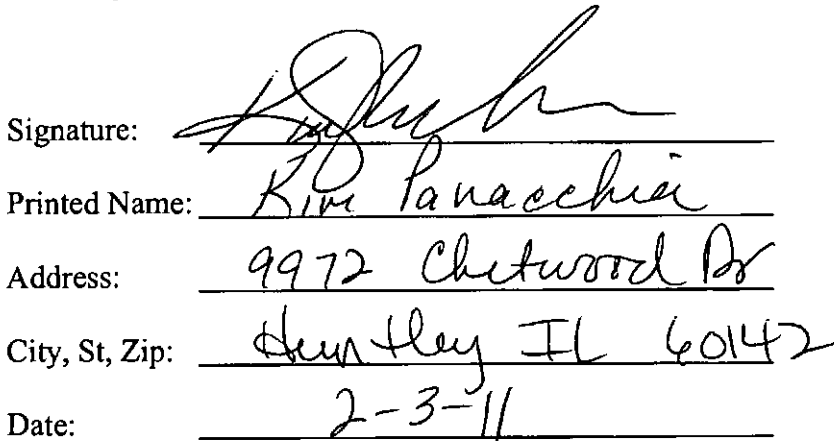 Signature:
Printed Name: Kim Panacchia
Address: 9972 Chetwood Dr
City, St, Zip: Huntley IL 60142
Date: 2-3-11